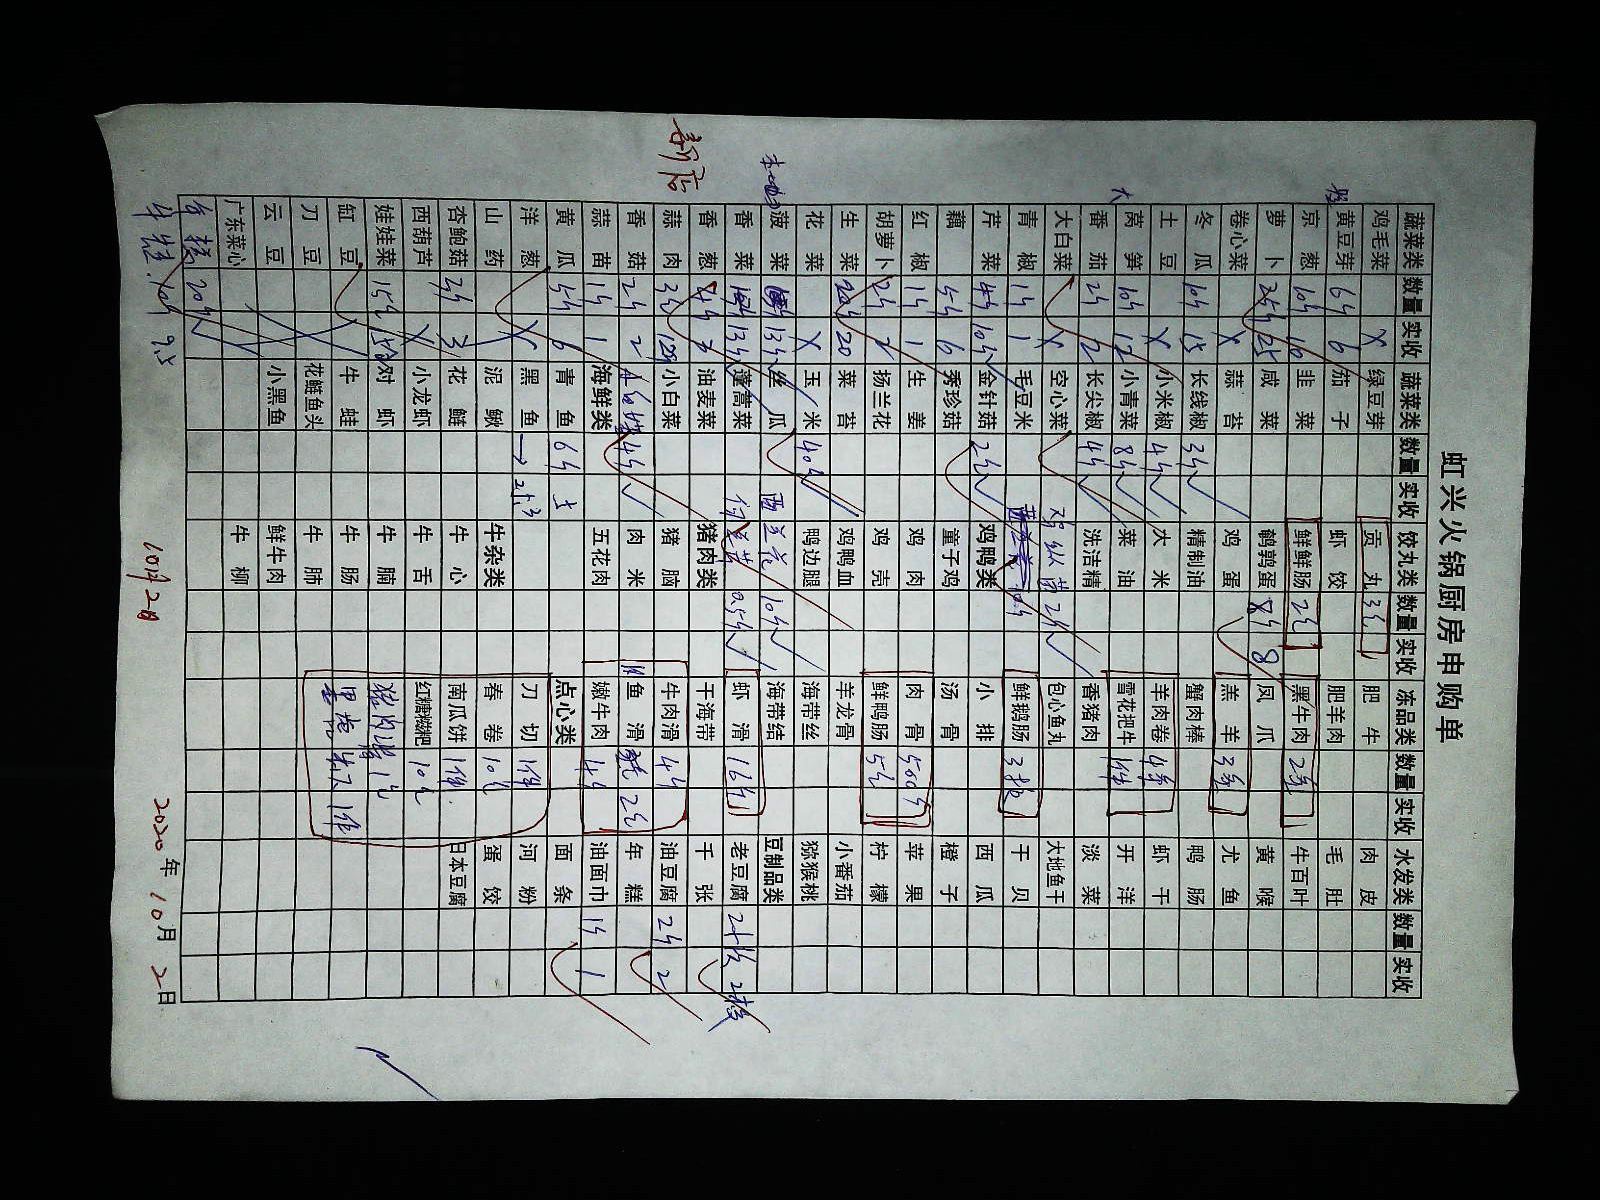 虹兴火锅厨房申购单
蔬菜类 数量 实收 蔬菜类 数量 实收 饺丸类 数量 实收 冻品类 数量 实收 水发类 数量 实收
鸡毛菜 X 绿豆芽 贡丸 3包 肥牛 肉皮
黄豆芽 6斤 6 茄子 虾饺 肥羊肉 毛肚
京葱 10斤 10 韭菜 鲜鲜肠 2包 黑牛肉 2条 牛百叶
萝卜 25斤 25 咸菜 鹌鹑蛋 8斤 8 凤爪 黄喉
卷心菜 X 蒜苔 鸡蛋 羔羊 3条 尤鱼
冬瓜 10斤 15 长线椒 3斤 精制油 蟹肉棒 鸭肠
土豆 X 小米椒 4斤 大米 羊肉卷 4条 虾干
大 莴笋 10斤 12 小青菜 8斤 菜油 雪花把牛 1件 开洋
番茄 2斤 2 长尖椒 4斤 洗洁精 香猪肉 淡菜
大白菜 X 空心菜 鸡纵菌 2斤 包心鱼丸 大地鱼干
青椒 1斤 1 毛豆米 鲜鹅肠 3包 干贝
芹菜 4斤 10斤 金针菇 2包 鸡鸭类 小排 西瓜
藕 5斤 6 秀珍菇 童子鸡 汤骨 橙子
红椒 1斤 1 生姜 鸡肉 肉骨 50斤 苹果
胡萝卜 2斤 2 扬兰花 鸡壳 鲜鸭肠 5包 柠檬
生菜 20斤 20 菜苔 鸡鸭血 羊龙骨 小番茄
花菜 X 玉米 40斤 鸭边腿 海带丝 猕猴桃
本地 菠菜 13斤 丝瓜 西兰花 10斤 海带结 豆制品类
香菜 13斤 蓬蒿菜 0.5斤 虾滑 16斤 老豆腐 2板 2板
香葱 4斤 3 油麦菜 猪肉类 干海带 千张
新店 蒜肉 3斤 12斤 小白菜 猪脑 牛肉滑 4斤 油豆腐 2斤 2
香菇 2斤 2 4斤 肉米 鱼滑 2包 年糕
蒜苗 1斤 1 海鲜类 五花肉 嫩牛肉 4斤 油面巾 1斤 1
黄瓜 5斤 6 青鱼 6斤 点心类 面条
洋葱 X 黑鱼 刀切 1件 河粉
山药 泥鳅 牛杂类 春卷 10包 蛋饺
杏鲍菇 2斤 3 花鲢 牛心 南瓜饼 1件 日本豆腐
西葫芦 X 小龙虾 牛舌 红糖糍粑 10包
娃娃菜 15包 对虾 牛腩
缸豆 牛蛙 牛肠 1件
刀豆 花鲢鱼头 牛肺
云豆 小黑鱼 鲜牛肉
广东菜心 牛柳
20斤
10斤 9.5 10月2日 2020年10月2日